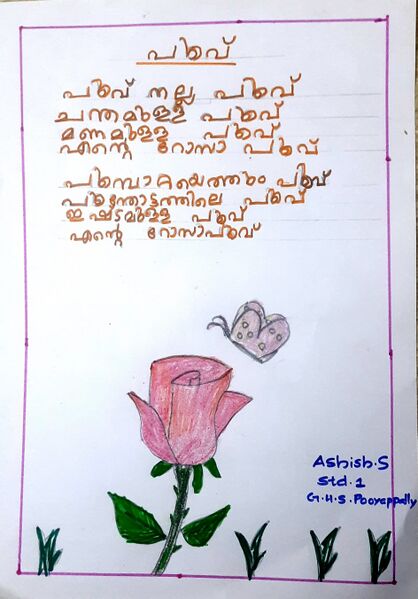 പൂവ്
പൂവ് നല്ല പൂവ്
ചന്തമുള്ള പൂവ്
മണമുള്ള പൂവ്
എന്റെ റോസാ പൂവ്
പൂമ്പാറ്റയെത്തും പൂവ്
പൂന്തോട്ടത്തിലെ പൂവ്
ഇഷ്ടമുള്ള പൂവ്
എന്റെ റോസാപൂവ്
Ashish.S
Std.1
G.H.S.Pooyappally